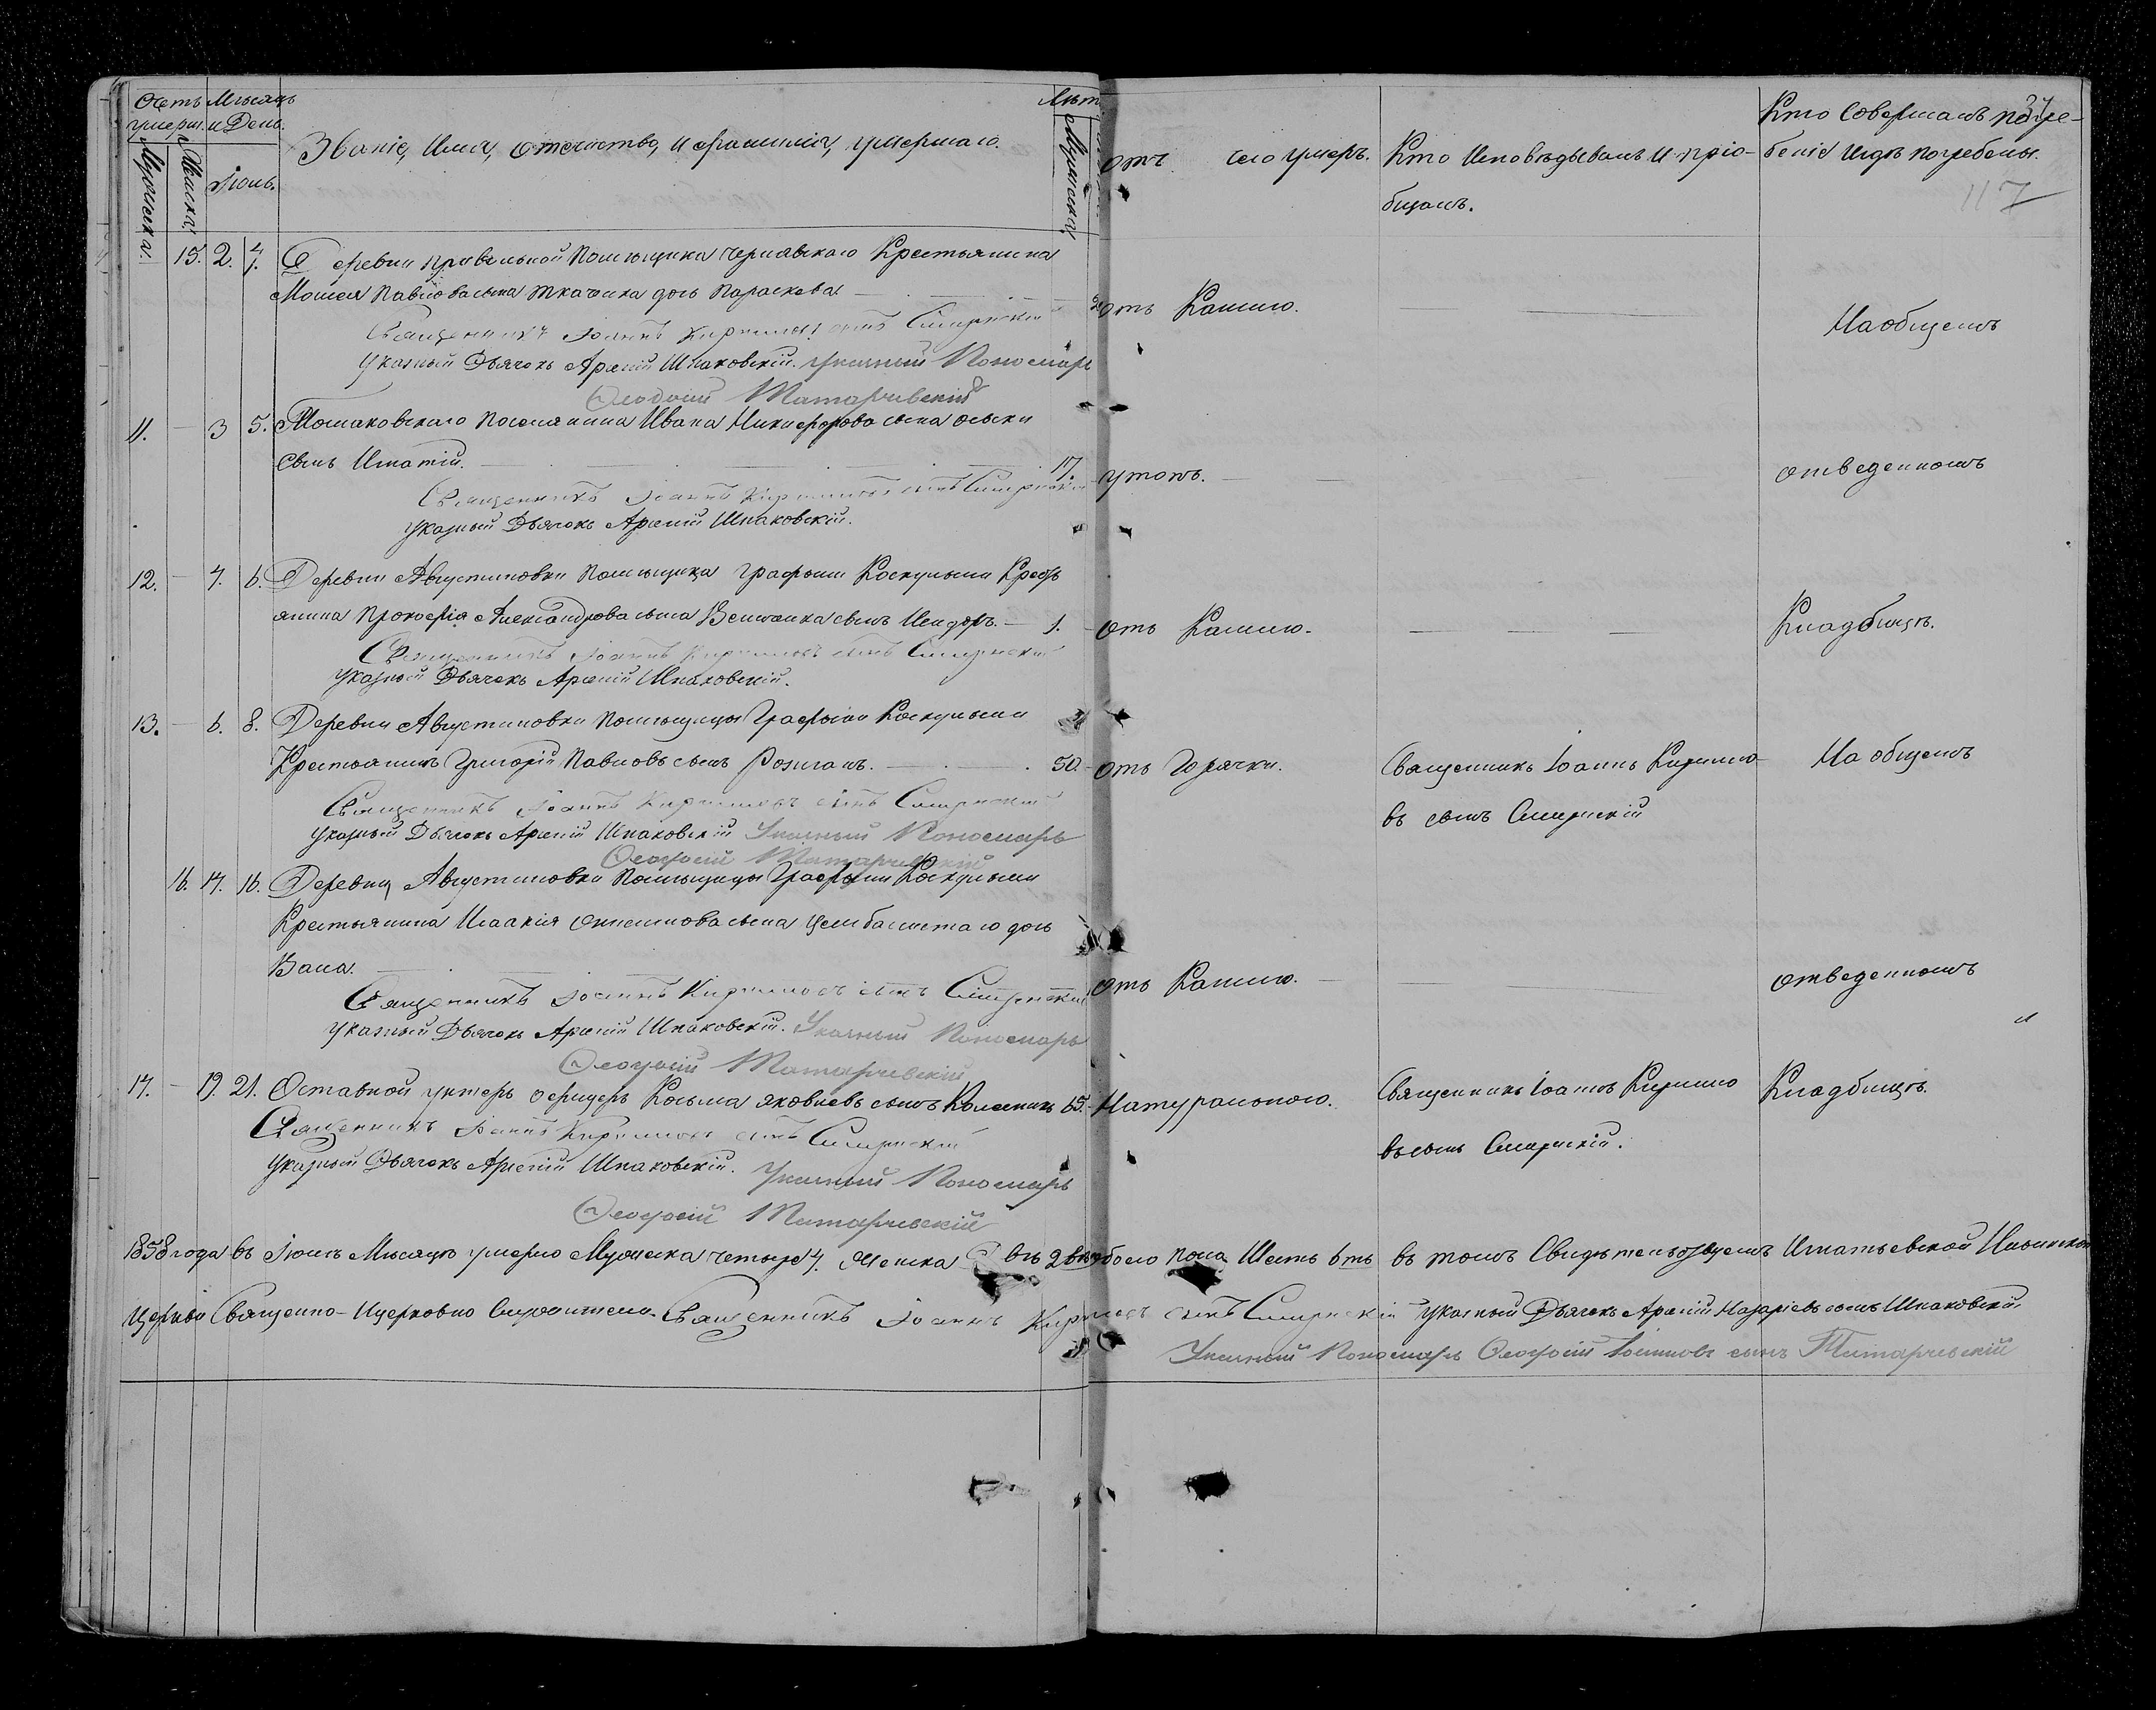 Счетъ умерш. Мѣсяцъ и День.
Мужеска. Женска. Іюнь.
Званіе, Имя, отечество, и фамилія, умершаго.
Лѣта
Мужеска
отъ чего умеръ.
Кто Исповѣдывалъ И пріо-
бщалъ.
37
Кто Совершалъ погре-
беніе Игдѣ погребены.
117
15. 2. 4. Деревни Привольной Помѣщика Чернявскаго Крестьянина
Моисея Павлова сына Ткаченка дочь Параскева.
отъ Кашлю.
На общемъ
Священникъ Іоаннъ Кирилловъ сынъ Смирнскій
Указный Дьячокъ Арсеній Шпаковскій. Указный Пономарь
Ѳеодосій Матаріевскій
11. 3 5. поселянина Ивана Никифорова сына
Сынъ Игнатій. 17.
утопъ.
отведенномъ
Священникъ Іоаннъ Кирилловъ сынъ Смирнскій
Указный Дьячокъ Арсеній Шпаковскій.
12. 4. 6. Деревни Августиновки Помѣщицы Графыни Крестъ
янина Прокофія Александрова сына сынъ Исидоръ. 1.
отъ Кашлю.
Кладбищѣ.
Священникъ Іоаннъ Кирилловъ сынъ Смирнскій
Указный Дьячекъ Арсеній Шпаковскій.
13. 6. 8. Деревни Августиновки Помѣщицы Графыни
Крестьянинъ Григорій Павловъ сынъ 50.
отъ Горячки.
Священникъ Іоаннъ Кирилло
въ сынъ Смирнскій
На общемъ
Священникъ Іоаннъ Кирилловъ сынъ Смирнскій
Указный Дьячокъ Арсеній Шпаковскій Указный Пономарь
Ѳеодосій Матаріевскій
16. 14. 16. Деревни Августиновки Помѣщицы Графыни
Крестьянина Исаакія сына дочь
отъ Кашлю.
отведенномъ
Священникъ Іоаннъ Кирилловъ сынъ Смирнскій
Указный Дьячокъ Арсеній Шпаковскій. Указный Пономарь
Ѳеодосій Матаріевскій
14. 19. 21. Отставной унтеръ офицеръ Косьма Яковлевъ сынъ Колесникъ 65.
Натуральною.
Священникъ Іоаннъ Кирилло
въ сынъ Смирнскій.
Кладбищѣ.
Священникъ Іоаннъ Кирилловъ сынъ Смирнскій
Указный Дьячокъ Арсеній Шпаковскій. Указный Пономарь
Ѳеодосій Матаріевскій
1858 года въ Іюнѣ Мѣсяцѣ умерло Мужеска четыре 4. Женска двѣ 2 обоего пола Шесть 6ть въ томъ Свидѣтельствуемъ Игнатьевской Ильинской
Церкви Священно-Ицерковно Служители. Священникъ Іоаннъ Кирилловъ сынъ Смирнскій Указный Дьячекъ Арсеній Назаріевъ сынъ Шпаковскій.
Указный Пономарь Ѳеодосій Іоанновъ сынъ Матаріевскій